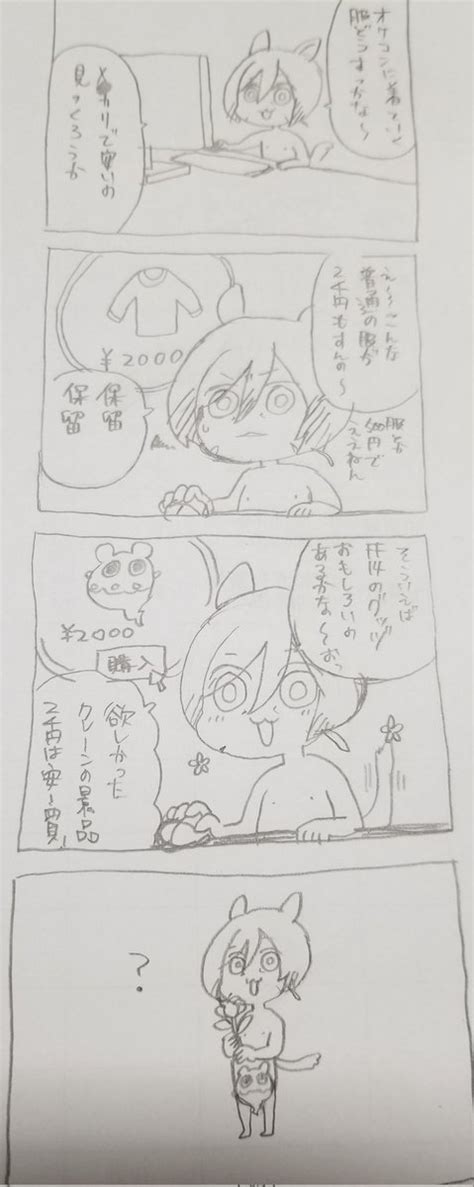 オケコンに着ていく
服どうすっかな〜
メルカリで安いの
見つくろうか
え〜〜こんな
普通の服が
2千円もすんの〜
服とか
500円で
ええねん
¥2000
保留
保留
そういえば
FF14のグッヅ
おもしろいの
あるかな〜おっ
¥2000
購入
欲しかった
クレーンの景品
2千円は安〜買,
?